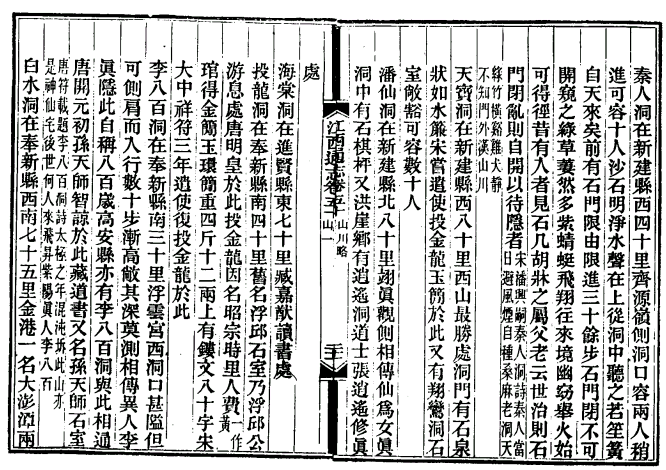 秦人洞在新建縣西四十里齊源嶺側洞口容兩人稍
進可容十人沙石明淨水聲在上從洞中聽之若笙簧
自天來矣前有石門限由限進三十餘步石門閉不可
開窺之綠草萋然多紫蜻蜓飛翔往來境幽窈舉火始
可得徑昔有人者見石几胡牀之屬父老云世治則石
門閉亂則自開以待隱者宋潘興嗣秦人洞詩秦人當日避風煙自種桑麻老洞天
綠竹橫谿雞犬靜不知門外漢山川
天寶洞在新建縣西八十里西山最勝處洞門有石泉
狀如水簾宋嘗遣使投金龍玉簡於此又有翔鸞洞石
室敞豁可容數十人
潘仙洞在新建縣北八十里翊眞觀側相傳仙爲女眞
洞中有石棋枰又洪崖鄉有逍遙洞道士張逍遙修眞
江西通志卷五十 山川略 山一 二十
處
海棠洞在進賢縣東七十里臧嘉猷讀書處
投龍洞在奉新縣南四十里舊名浮邱石室乃浮邱公
游息處唐明皇於此投金龍因名昭宗時里人費一作黃
琯得金簡玉環簡重四斤十二兩上有鏤文八十字朱
大中祥符三年遣使復投金龍於此
李八百洞在奉新縣南三十里浮雲宮西洞口甚隘但
可側肩而入行數十步漸高敞其深莫測相傳異人李
眞隱此自稱八百歲高安縣亦有李八百洞與此相通
唐開元初孫天師智諒於此藏道書又名孫天師石室
唐符載題李八百洞詩太極之年混沌坼此山亦是神仙宅後世何人來飛昇紫陽眞人李八百
白水洞在奉新縣西南七十五里金港一名大澎潭兩